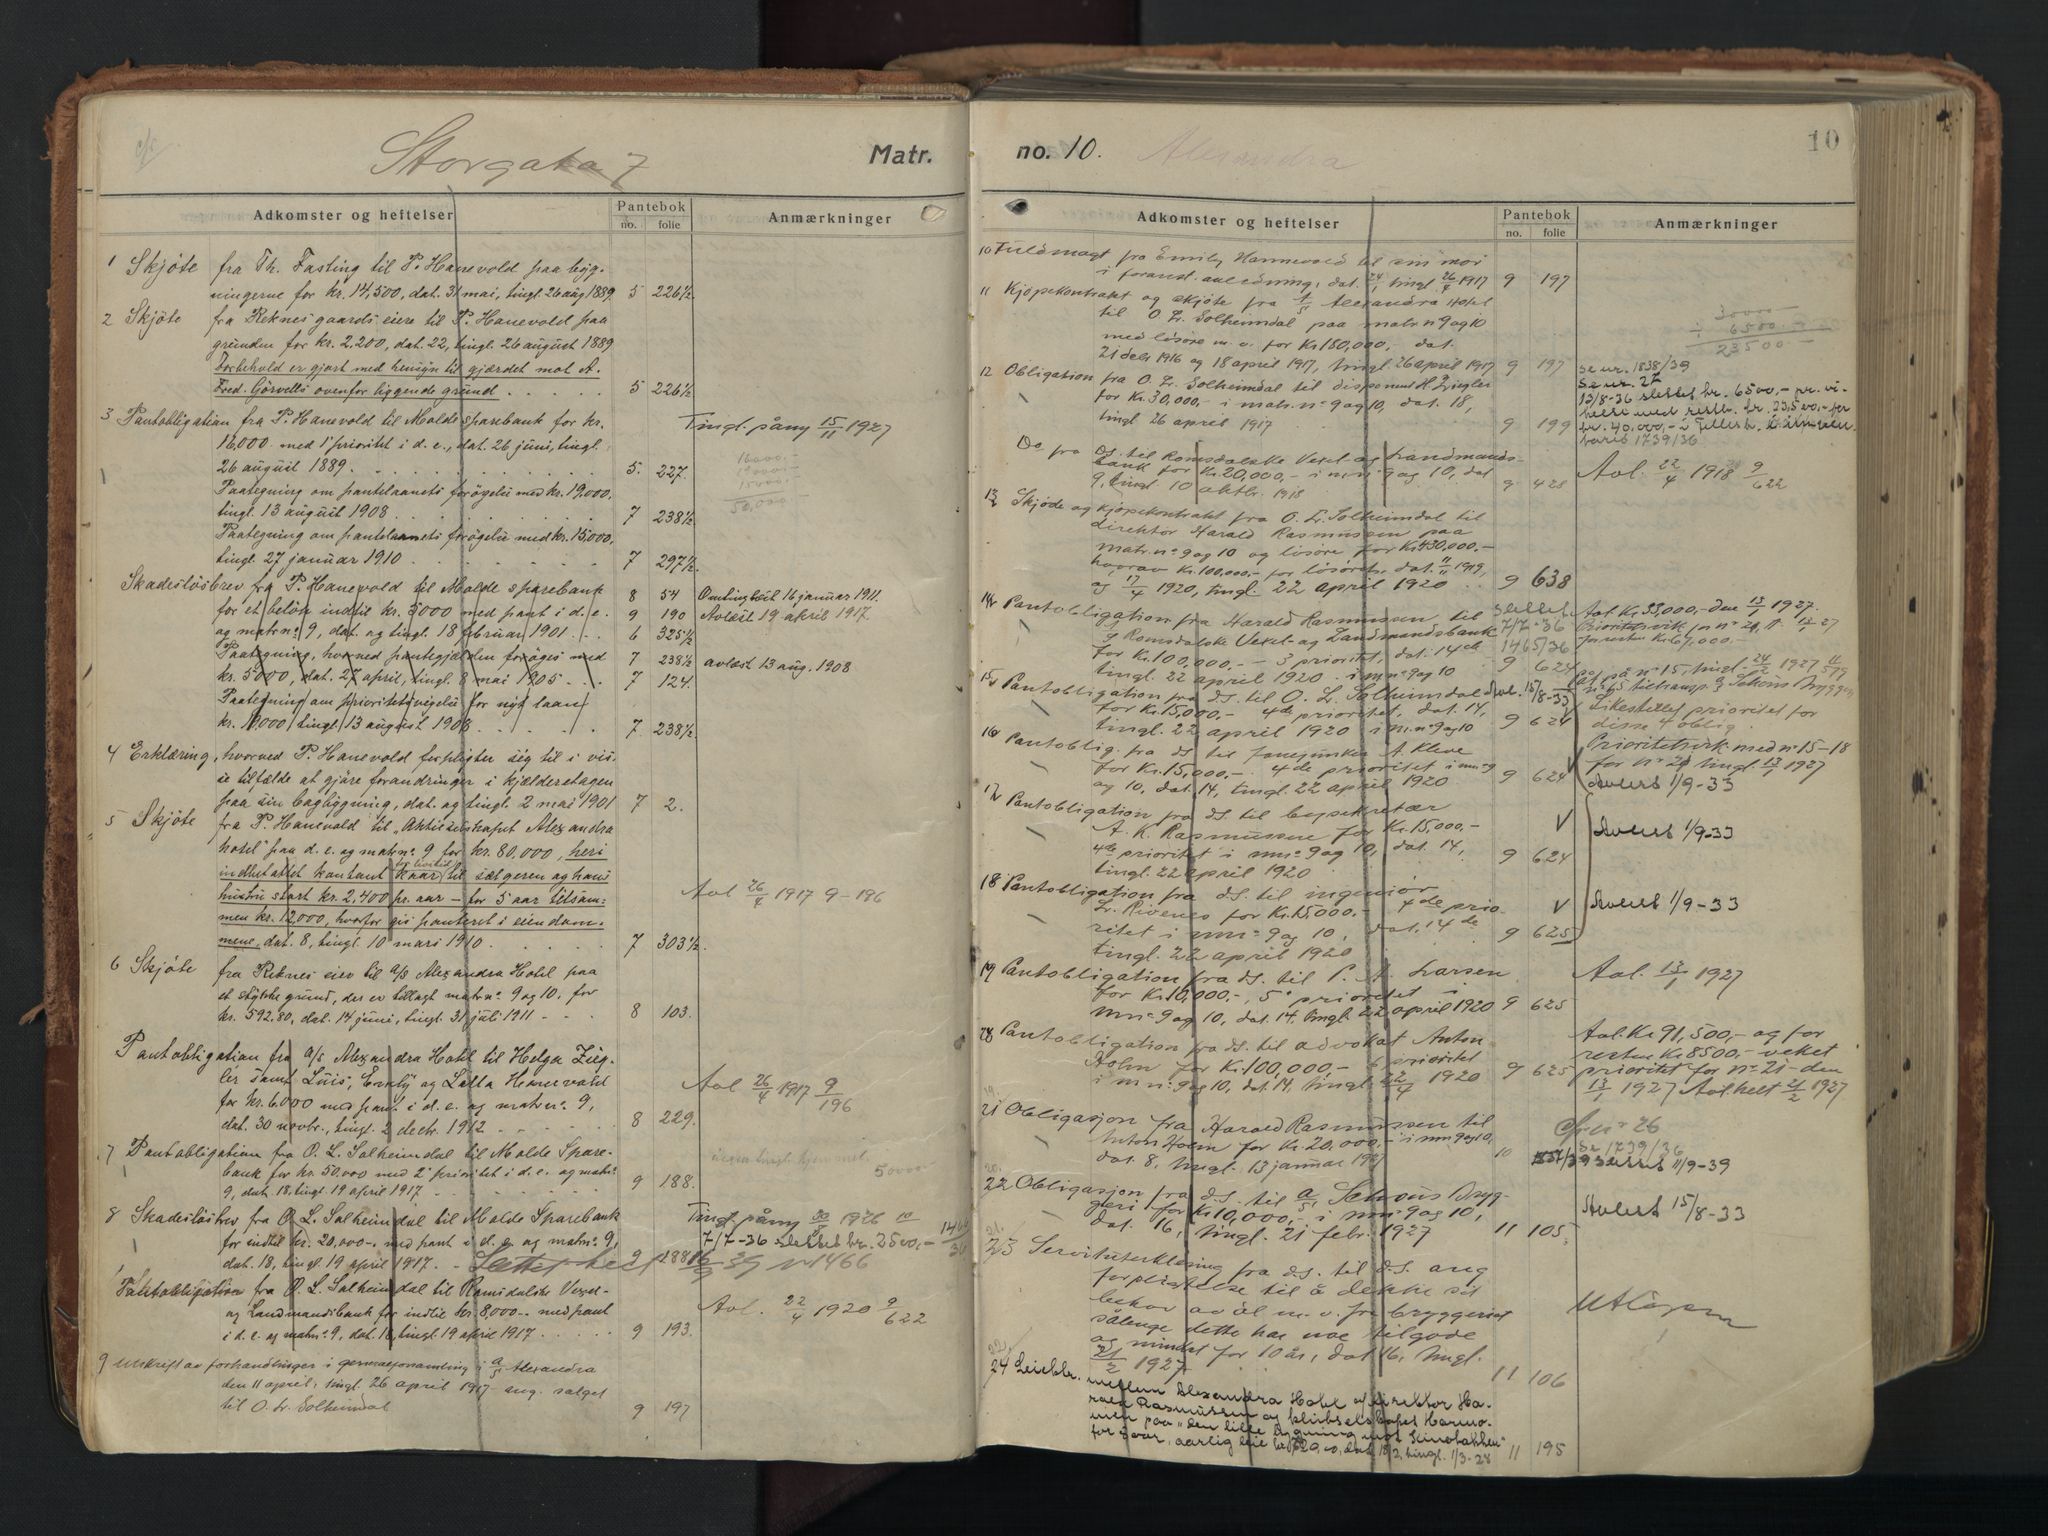 Storgata 7
Matr.
Adkomster og heftelser
Pantebok
no. folie
Anmærkninger
1 Skjöte fra Th. Fasting til P. Hanevold paa byg-
ningerne for kr. 14,500, dat. 31 mai, tingl. 26 aug 1889. 5 226½
2 Skjöte fra Reknesgaards eiere til P. Hanevold paa
grunden for kr. 2,200, dat. 22, tingl. 26 august 1889
Forbehold er gjort med hensyn til gjærdet mot A.
Fred. Görvells ovenfor liggende grund 5 226½
3 Pantobligation fra P. Hanevold til Molde sparebank for kr. Tingl. påny 15/11 1927
16,000 med 1' prioritet i d. e., dat. 26 juni, tingl. 16000.-
26 august 1889. 5. 227. 19000.-
Paategning om pantelaanets forögelse med kr. 19,000, 15000.-
tingl. 13 august 1908 7 238½ 50,000
Paategning om pantelaanets forögelse med kr. 15,000,
tingl. 27 januar 1910 7 297½
Skadeslösbrev fra P. Hanevold til Molde sparebank 8 54 Omtinglæst 16 januar 1911.
for et belöp indtil kr. 5000 med pant i d. e. 9 190 Avlæst 19 april 1917.
og matr nº 9, dat. og tingl. 18 februar 1901 6 325½
Paategning, hvorved pantegjælden foröges med 7 238½ avlæst 13 aug. 1908
kr. 5000, dat. 27 april, tingl. 8 mai 1905 7 124.
Paategning om prioritetsvigelse for nyt laan
kr. 19,000 tingl. 13 august 1908 7 238½.
4 Erklæring, hvorved P. Hanevold forpligter sig til i vis-
se tilfælde at gjöre forandringer i kjælderetagen
paa sin bagbygning, dat. og tingl. 2 mai 1901 7 2.
5 Skjöte fra P. Hanevold til "Aktieselskapet Alexandra
hotel" paa d. e. og matr nº 9 for kr. 80,000, heri
indbefattet kontant kaar til sælgeren og hans
hustru stort kr. 2,400 pr. aar - for 5 aar tilsam- Avl 26/4 1917 9-196
men kr. 12,000, hvorfor gis panteret i eiendom-
mene, dat. 8, tingl. 10 mars 1910 7 303½.
6 Skjöte fra Reknes eier til a/s Alexandra Hotel paa
et stykke grund, der er tillagt matr nº 9 og 10, for
kr. 592.80, dat. 14 juni, tingl. 31 juli 1911 8 103.
Pantobligation fra a/s Alexandra Hotel til Helga Zieg-
ler samt Luis, Emily og Lalla Hanevold Avl 26/4 1917 9/196
for kr. 6,000 med pant i d. e. og matr nº 9,
dat. 30 novbr., tingl. 2 decbr. 1912 8 229.
7 Pantobligation fra O. L. Solheimdal til Molde Spare-
bank for kr. 50,000 med 2' prioritet i d. e. og matr nº 50000
9, dat. 18, tingl. 19 april 1917 9 188.
8 Skadeslösbrev fra O. L. Solheimdal til Molde Sparebank Tingl. påny 1926
for indtil kr. 20,000.- med pant i d. e. og matr nº 9, 7/7-36 slettet kr. 2500,- 1466/36
dat. 18, tingl. 19 april 1917. 9 188
Pantobligation fra O. L. Solheimdal til Romsdalske Vexel-
og Landmandsbank for indtil kr. 8,000.- med pant Avl. 22/4 1920 9/622
i d. e. og matr nº 9, dat. 18, tingl. 19 april 1917 9 193.
9 Utskrift av forhandlinger i generalforsamling i a/s Alexandra
den 11 april, tingl. 26 april 1917 ang. salget
til O. L. Solheimdal 9 197
no. 10. Alexandra 10
Adkomster og heftelser
Pantebok
no. folie
Anmærkninger
10 Fuldmagt fra Emily Hannevold til sin mor
i foranst. anledning, dat. 24/1 tingl. 26/4 1917 9 197
11 Kjöpekontrakt og skjöte fra a/s Alexandra Hotel 30000
til O. L. Solheimdal paa matr nº 9 og 10 6500
med lösöre m. v. for Kr 150,000, dat. 23500
21 debr 1916 og 18 april 1917, tingl. 26 april 1917 9 197 Se nr. 1838/39
12 Obligation fra O. L. Solheimdal til disponent H. Ziegler Se nr. 27
for Kr. 30,000,- i matr. nº 9 og 10, dat. 18, 13/8-36 slettet kr. 6500,-
tingl 26 april 1917 9 199
Do fra ds. til Romsdalske Vexel- og Landmands-
bank for kr. 20,000,- i m nº 9 og 10, dat Avl. 22/4 1918 9/622
9, tingl. 10 oktbr. 1918 9 428
13 Skjöde og kjöpekontrakt fra O. L. Solheimdal til
direktör Harald Rasmussen paa
matr. nº 9 og 10 og lösöre for Kr 430,000.-
hvorav Kr. 100,000.- for lösöret, dat. 11/11 1919,
og 17/4 1920, tingl. 22 april 1920 9 638
14 Pantobligation fra Harald Rasmussen til Slettet Avl. Kr 33,000,- den 13/1 1927.
Romsdalske Vexel- og Landmandsbank 7/7-36
for Kr. 100,000.- 3 prioritet, dat. 14de 1465/36
tingl. 22 april 1920. i m nº 9 og 10 9 624
15 Pantobligation fra ds. til O. L. Solheimdal Avl. 15/8-33
for Kr. 15,000.- 4de prioritet, dat. 14, Likestillet prioritet for
tingl. 22 april 1920 i m. nº 9 og 10 9 624 disse 4 oblig.
16 Pantoblig. fra ds. til A. Kleve Prioritetsvik med nº 15-18
for Kr. 15,000.- 4de prioritet i m nº 9 for nº 21 tingl. 13/1 1927
og 10, dat. 14, tingl. 22 april 1920 9 624 Avlest 1/9-33
17 Pantobligation fra ds. til bysekretær
A. K. Rasmussen for Kr. 15,000.- Avlest 1/9-33
4de prioritet i m nº 9 og 10, dat. 14,
tingl. 22 april 1920 9 624
18 Pantobligation fra ds. til ingeniör
L. Rivenes for Kr. 15000.- 4de prio- Avlest 1/9-33
ritet i m nº 9 og 10, dat. 14de 9 625
tingl. 22 april 1920
19 Pantobligation fra ds. til P. A. Larsen Avl. 13/1 1927
for Kr. 10,000.-, 5' prioritet i
m nº 9 og 10, dat. 14, tingl 22 april 1920 9 625
20 Pantobligation fra ds. til advokat Anton Avl. Kr 91,500,- og for
Holm for Kr. 100,000,- 6 prioritet resten Kr 8500,- veket
i m nº 9 og 10, dat. 14, tingl. 22/4 1920 9 625 prioritet for nº 21 - den
13/1 1927 Avl. helt 21/2 1927
21 Obligasjon fra Harald Rasmussen til
Anton Holm for Kr. 20,000.- i m nº 9 og 10, Se 1739/36
dat. 8, tingl. 13 januar 1927 10 Slettet 11/9-39
22 Obligasjon fra d.s. til a/s Schous Bryg-
geri for Kr 10,000,- i m nº 9 og 10, Avlest 15/8-33
dat. 16, tingl. 21 febr. 1927 11 105
23 Servituterklæring fra d.s. til d.s. ang
forpliktelse til å dekke sit
behov av öl m. v. fra bryggeriet
sålenge dette har noe tilgode
og mindst for 10 år, dat 16, tingl.
21/2 1927 11 106
24 Leiekbr. mellem Alexandra Hotel v/ direktör Ha-
rald Rasmussen og klubselskapet Harmo-
nien paa "den lille bygning mot
for aar, aarlig leie dat 18/2, tingl. 1/3-28 11 195